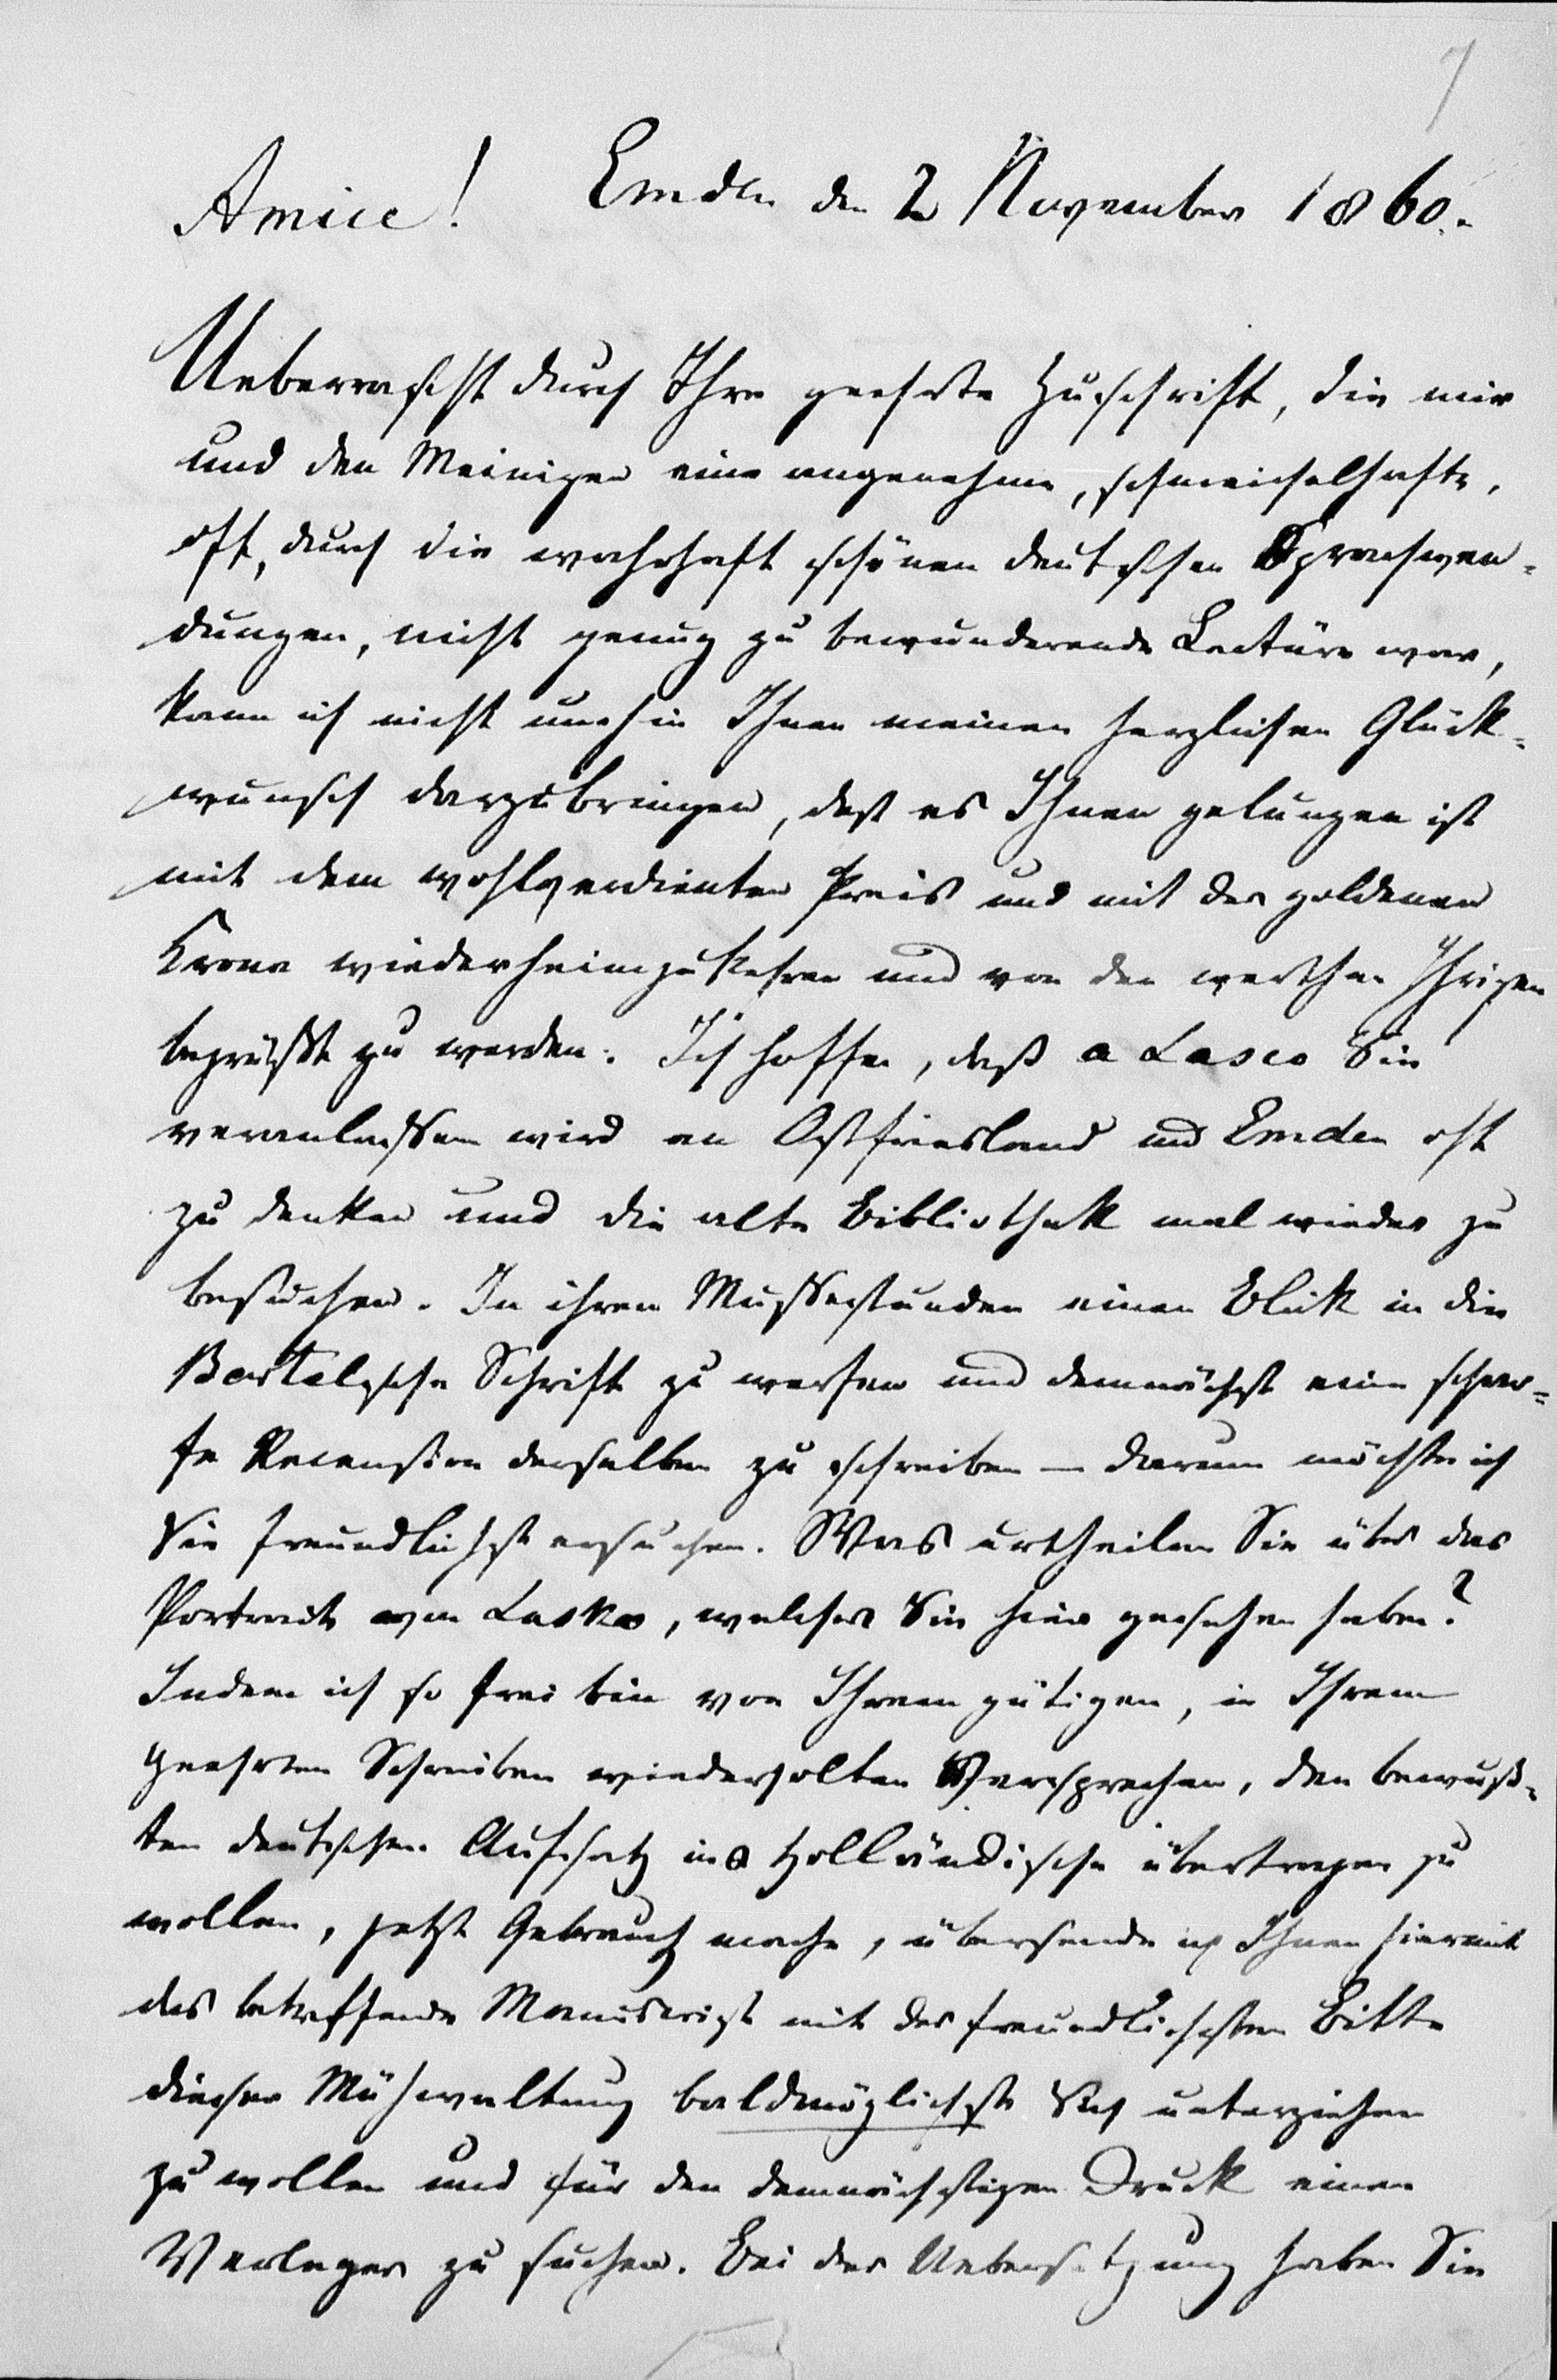 7
Amice! Emden den 2 November 1860.
Ueberrascht durch Ihre geehrte Zuschrift, die mir
und den Meinigen eine angenehme, schmeichelhafte,
oft, durch die wahrhaft schönen deutschen Sprachwen-
dungen, nicht genug zu bewundernde Lectüre war,
kann ich nicht umhin Ihnen meinen herzlichen Glück-
wunsch darzubringen, daß es Ihnen gelungen ist
mit dem wohlverdienten Preis und mit der goldenen
Krone wiederheimzukehren und von den werthen Ihrigen
begrüßt zu werden. Ich hoffe, daß a Lasco Sie
veranlassen wird an Ostfriesland und Emden oft
zu denken und die alte Bibliothek mal wieder zu
besuchen. In ihren Mussestunden einen Blick in die
Bartelssche Schrift zu werfen und demnächst eine schar-
fe Recension derselben zu schreiben — darum möchte ich
Sie freundlichst ersuchen. Was urtheilen Sie über das
Portrait von Lasko, welches Sie hier gesehen haben?
Indem ich so frei bin von Ihrem gütigen, in Ihrem
geehrten Schreiben wiederholten Versprechen, den bewuß-
ten deutschen Aufsatz ins Holländische übertragen zu
wollen, jetzt Gebrauch mache, übersende ich Ihnen hiermit
das betreffende Manuscript mit der freundlichsten Bitte
dieser Mühwaltung baldmöglichst Sich unterziehen
zu wollen und für den demnächstigen Druck einen
Verleger zu suchen. Bei der Uebersetzung haben Sie